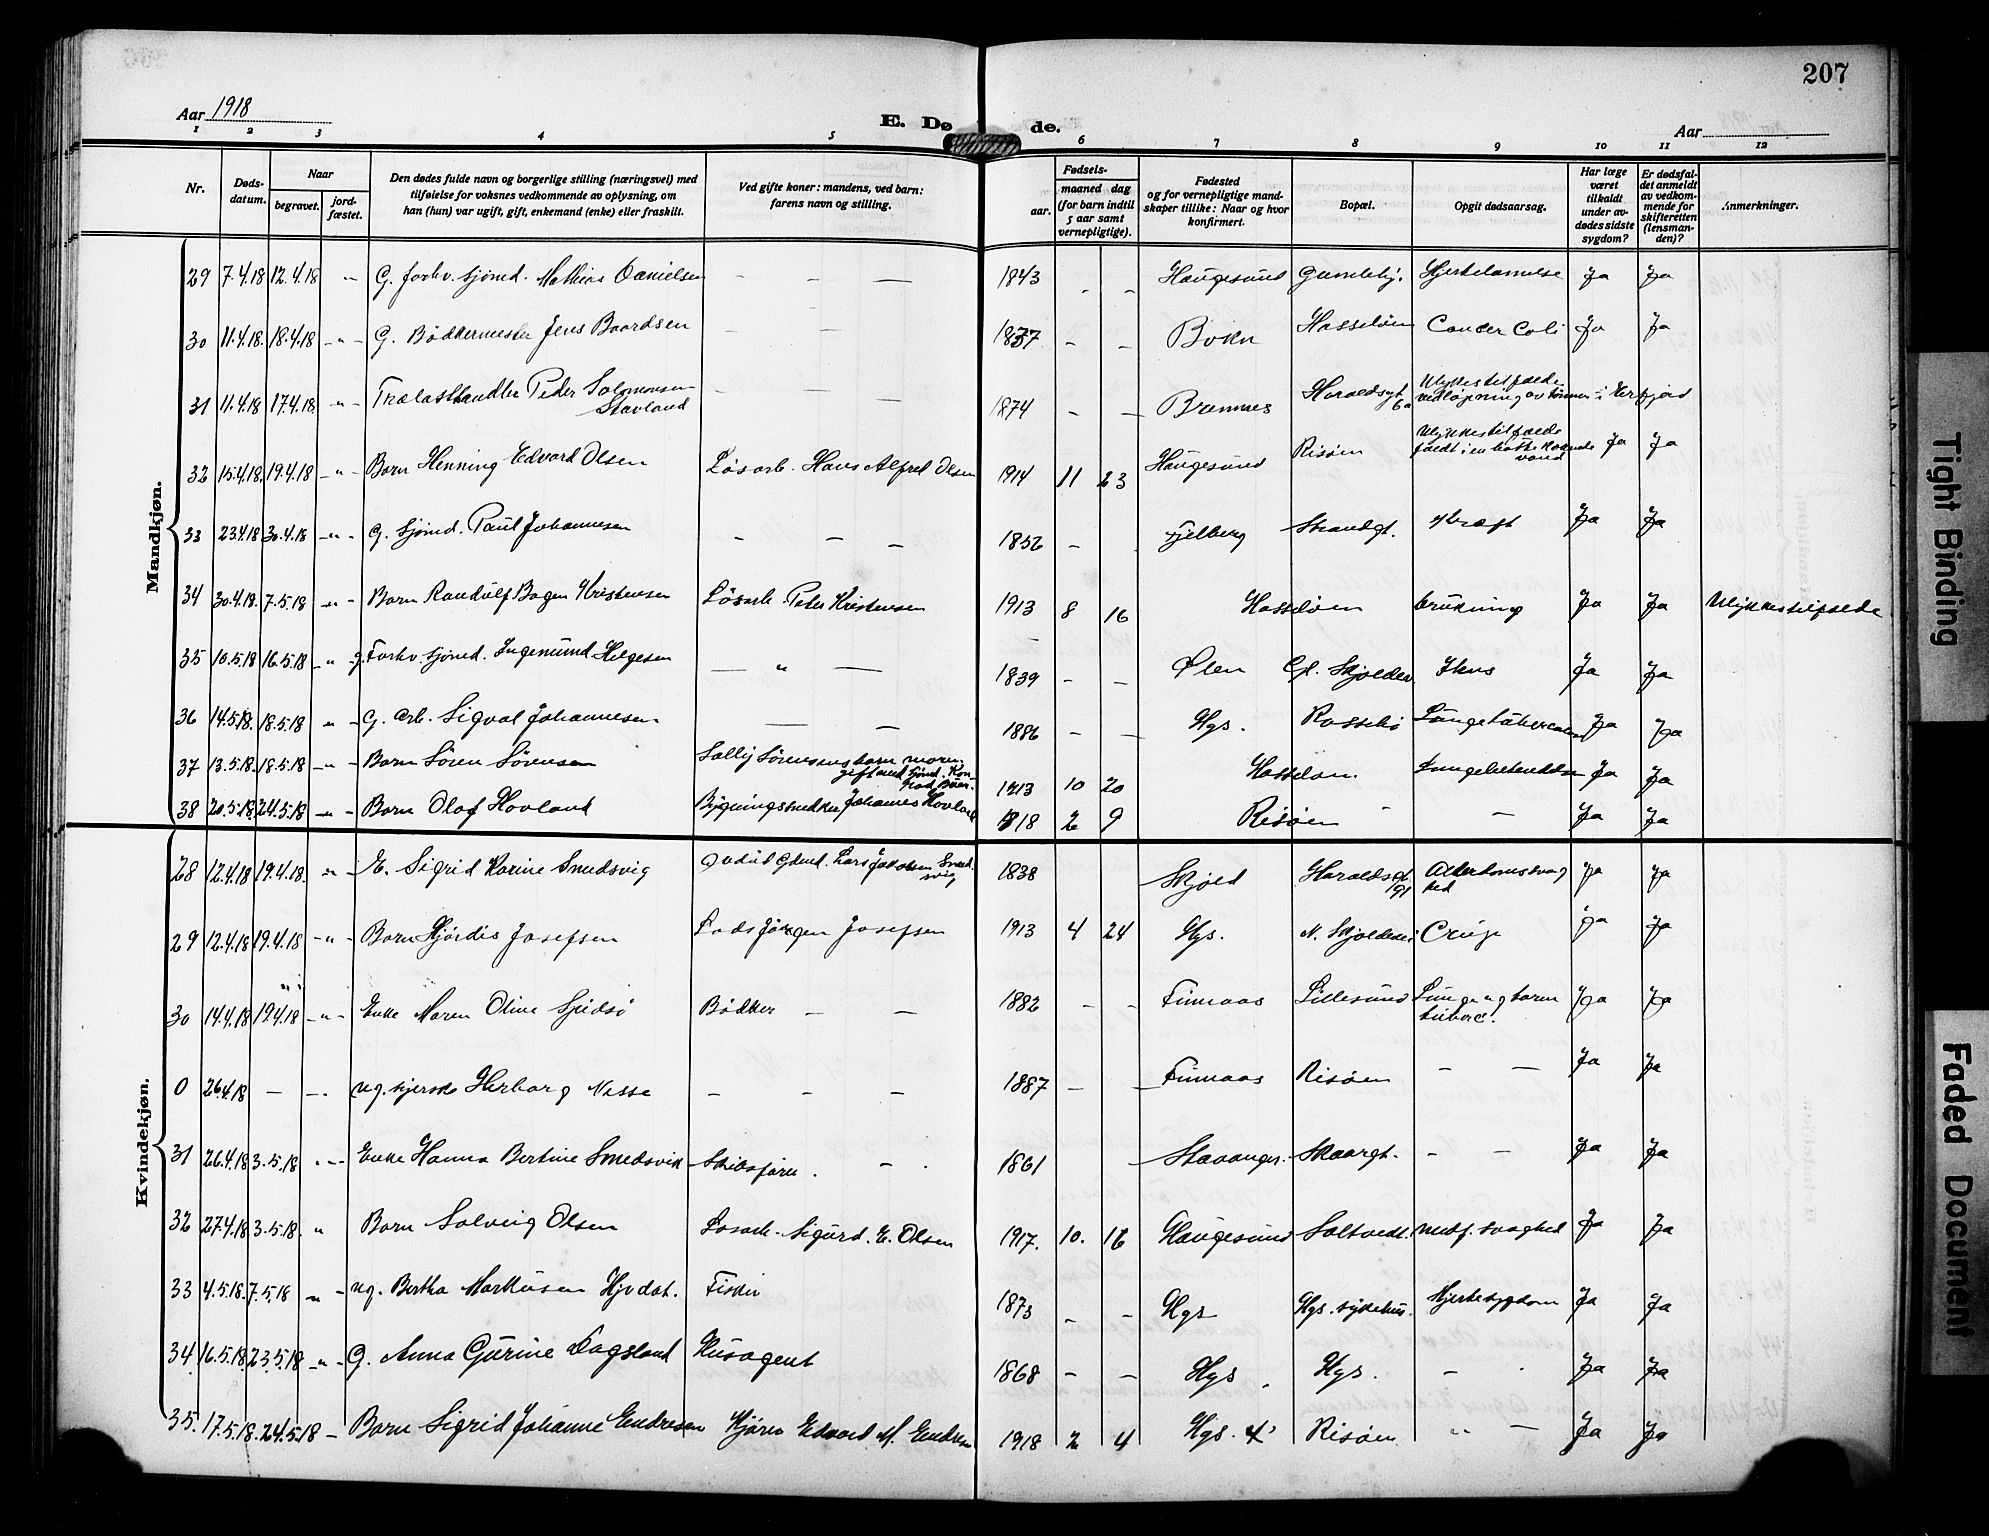 207
Aar 1918
E. Døde.
Aar
1 2 3 4 5 6 7 8 9 10 11 12
Nr.
Døds-
datum.
Naar
begravet.
jord-
fæstet.
Den dødes fulde navn og borgerlige stilling (næringsvei) med
tilføielse for voksnes vedkommende av oplysning, om
han (hun) var ugift, gift, enkemand (enke) eller fraskilt.
Ved gifte koner: mandens, ved barn:
farens navn og stilling.
Fødsels-
aar.
maaned dag
(for barn indtil
5 aar samt
vernepligtige).
Fødested
og for vernepligtige mand-
skaper tillike: Naar og hvor
konfirmert.
Bopæl.
Opgit dødsaarsag.
Har læge
været
tilkaldt
under av-
dødes sidste
sygdom?
Er dødsfal-
det anmeldt
av vedkom-
mende for
skifteretten
(lensman-
den)?
Anmerkninger.
Mandkjøn.
29 7.4.18 12.4.18 -"- G. forhv. sjømd. Mathias Danielsen — — — 1843 - - Haugesund Gamleby. Hjertelammelse Ja Ja
30 11.4.18. 18.4.18 -"- G. Bödkermester Jens Baardsen — — — 1837 - - Bokn Hasseløen Cancer Coli Ja Ja
31 11.4.18 17.4.18 -"- Trælasthandler Peder Salomonsen
Stavland — — — 1874 - - Bremnes Haraldsgt
6a Ulykkestilfælde
ved løpning av tømmer i Ja
32 15.4.18. 19.4.18 -"- Barn Henning Edvard Olsen Løsarb. Hans Alfred Olsen 1914 11 23 Haugesund Risøen Ulykkestilfælde
faldt i en kogende
vand Ja Ja
33 23.4.18 30.4.18 -"- G. Sjømd. Paul Johannesen - - - 1852 - Fjelberg Strandgt. Kræft Ja Ja
34 30.4.18. 7.5.18 -"- Barn Randulf Bagen Kristensen Løsarb. Peder Kristensen 1913 8 16 Hasseløen Drukning Ja Ja Ulykkestilfælde
35 10.5.18 16.5.18 -"- g. Forhv. sjømd. Ingemund Helgesen — " — 1839 - - Ølen Gl. Skjolden Ja Ja
36 14.5.18. 18.5.18 " G. Arb. Sigval Johannesen — — 1886 - - Hgs. Rossebø Lungetuberculose Ja Ja
37 13.5.18. 18.5.18 -"- Barn Søren Sørensen Sally Sørensens barn moren
gift med sjømd. 1913 10 20 Hasseløen Lungebetændelse Ja Ja
38 20.5.18. 24.5.18 -"- Barn Olaf Hovland Bygningssnedker Johannes Hovland 1918 2 9 Risøen - — Ja Ja
Kvindekjøn.
28 12.4.18 19.4.18. -"- E. Sigrid Karine Smedsvig Lars Jakobsen Smed-
svig 1838 Skjold Haraldsgt
191 Alderdomssvag
hed Ja Ja
29 12.4.18 19.4.18 -"- Barn Hjørdis Josefsen Lods Jørgen Josefsen 1913 4 24 Hgs. N. Skjoldavei Croup Ja Ja
30 14.4.18 19.4.18 -"- Enke Maren Oline Bödker — — 1882 - - Finnaas Lillesund Lunge og tarm
tuberc. Ja Ja
0 26.4.18 — -.- ug. Herborg Nesse - - - 1887 - - Finnaas Risøen - — Ja Ja
31 26.4.18 3.5.18 Enke Hanna Bertine Smedsvik Skibsfører. - . 1861 - Stavanger. Skaargt. - - Ja Ja
32 27.4.18 3.5.18. " Barn Solveig Olsen Løsarb. Sigurd. E. Olsen 1917. 10. 16 Haugesund Saltvedt. medf. svaghed Ja Ja
33 4.5.18. 7.5.18 " ug. Bertha Markusen Fisker 1873 - - Hgs Hgs. sykehus. Hjertesygdom Ja Ja
34 16.5.18. 23.5.18 -"- G. Anna Gurine Dagsland Husagent 1868 - - Hgs. Hgs. - . Ja Ja
35. 17.5.18. 24.5.18 - Barn Sigrid Johanne Endresen Kjører Edvard M. Endresen 1918 2 4 Hgs. Risøen " — Ja Ja
Tight Binding
Faded Document